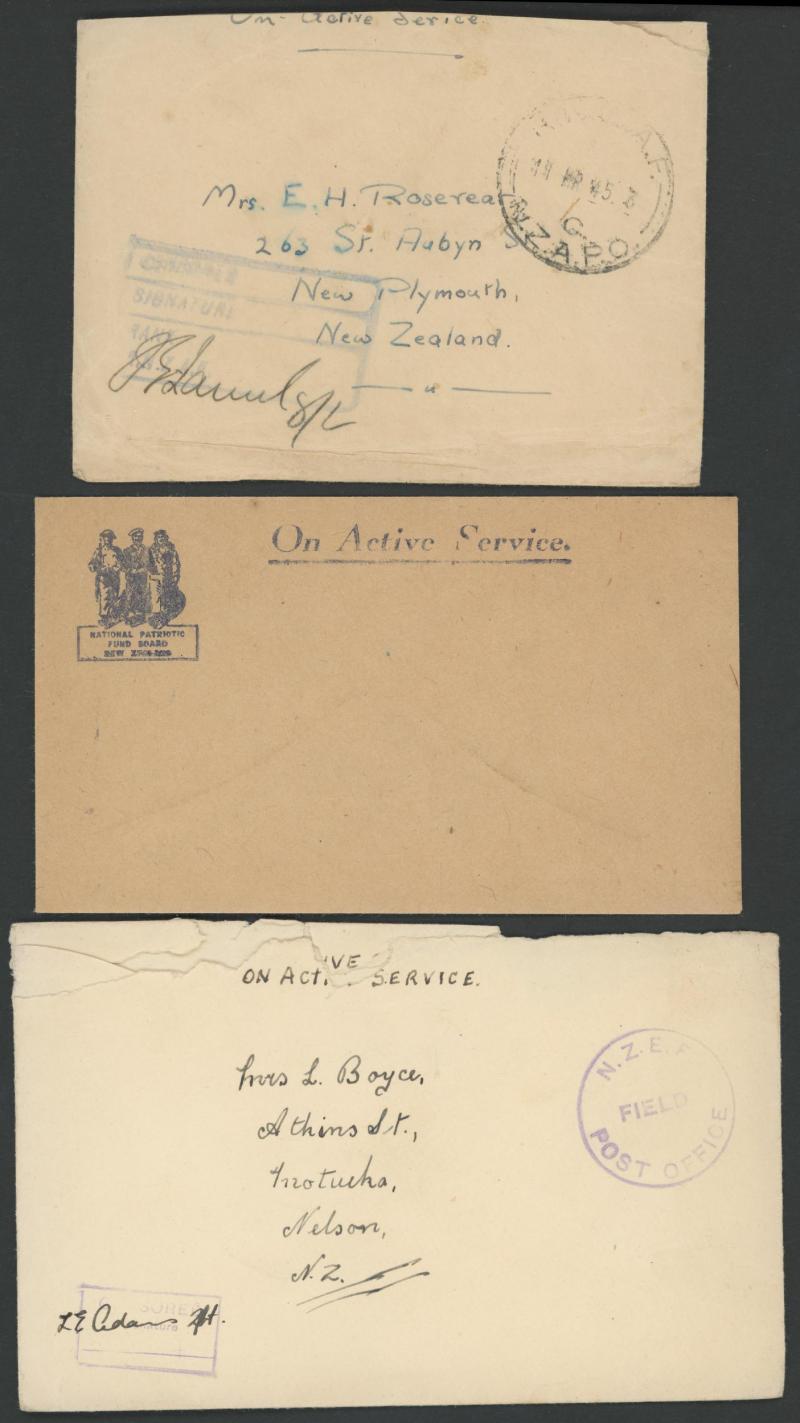 On Active Serice
Mrs. E. H. Rosereat
263 St. Aubyn S
New Plymouth,
New Zealand.
A.F.
5
G.
N.Z.A.P.O.
SIGNATURE
RANK
On Active Service.
NATIONAL PATRIOTIC
FUND BOARD
NEW ZEALAND
ON ACTIVE SERVICE.
Mrs L. Boyce,
Atkins St.,
Motueka,
Nelson,
N.Z.
N.Z.E.F
FIELD
POST OFFICE
L E Adams